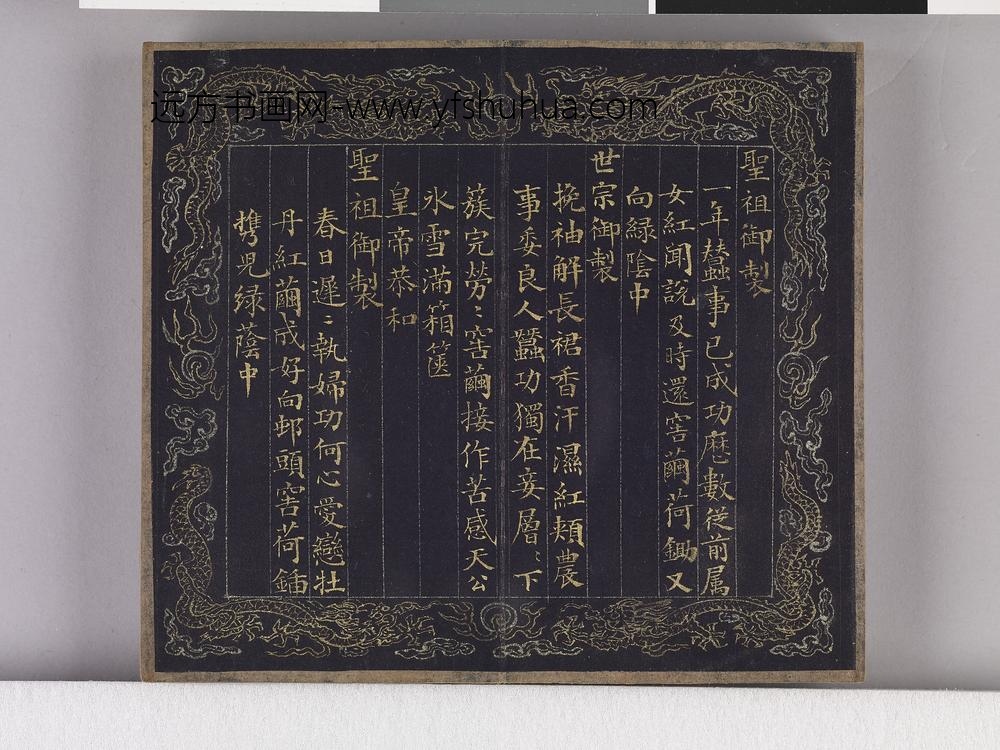 远方书画网-www.yfshuhua.com
聖祖御製
一年蠶事已成功歴數從前属
女紅聞說及時還窖繭荷鋤又
向緑陰中
世宗御製
挽袖解長裙香汗濕紅頰農
事委良人蠶功獨在妾層〻下
簇完勞〻窖繭接作苦感天公
氷雪滿箱篋
皇帝恭和
聖祖御製
春日遲〻執婦功何心愛戀牡
丹紅繭成好向邨頭窖荷鍤
携児緑蔭中